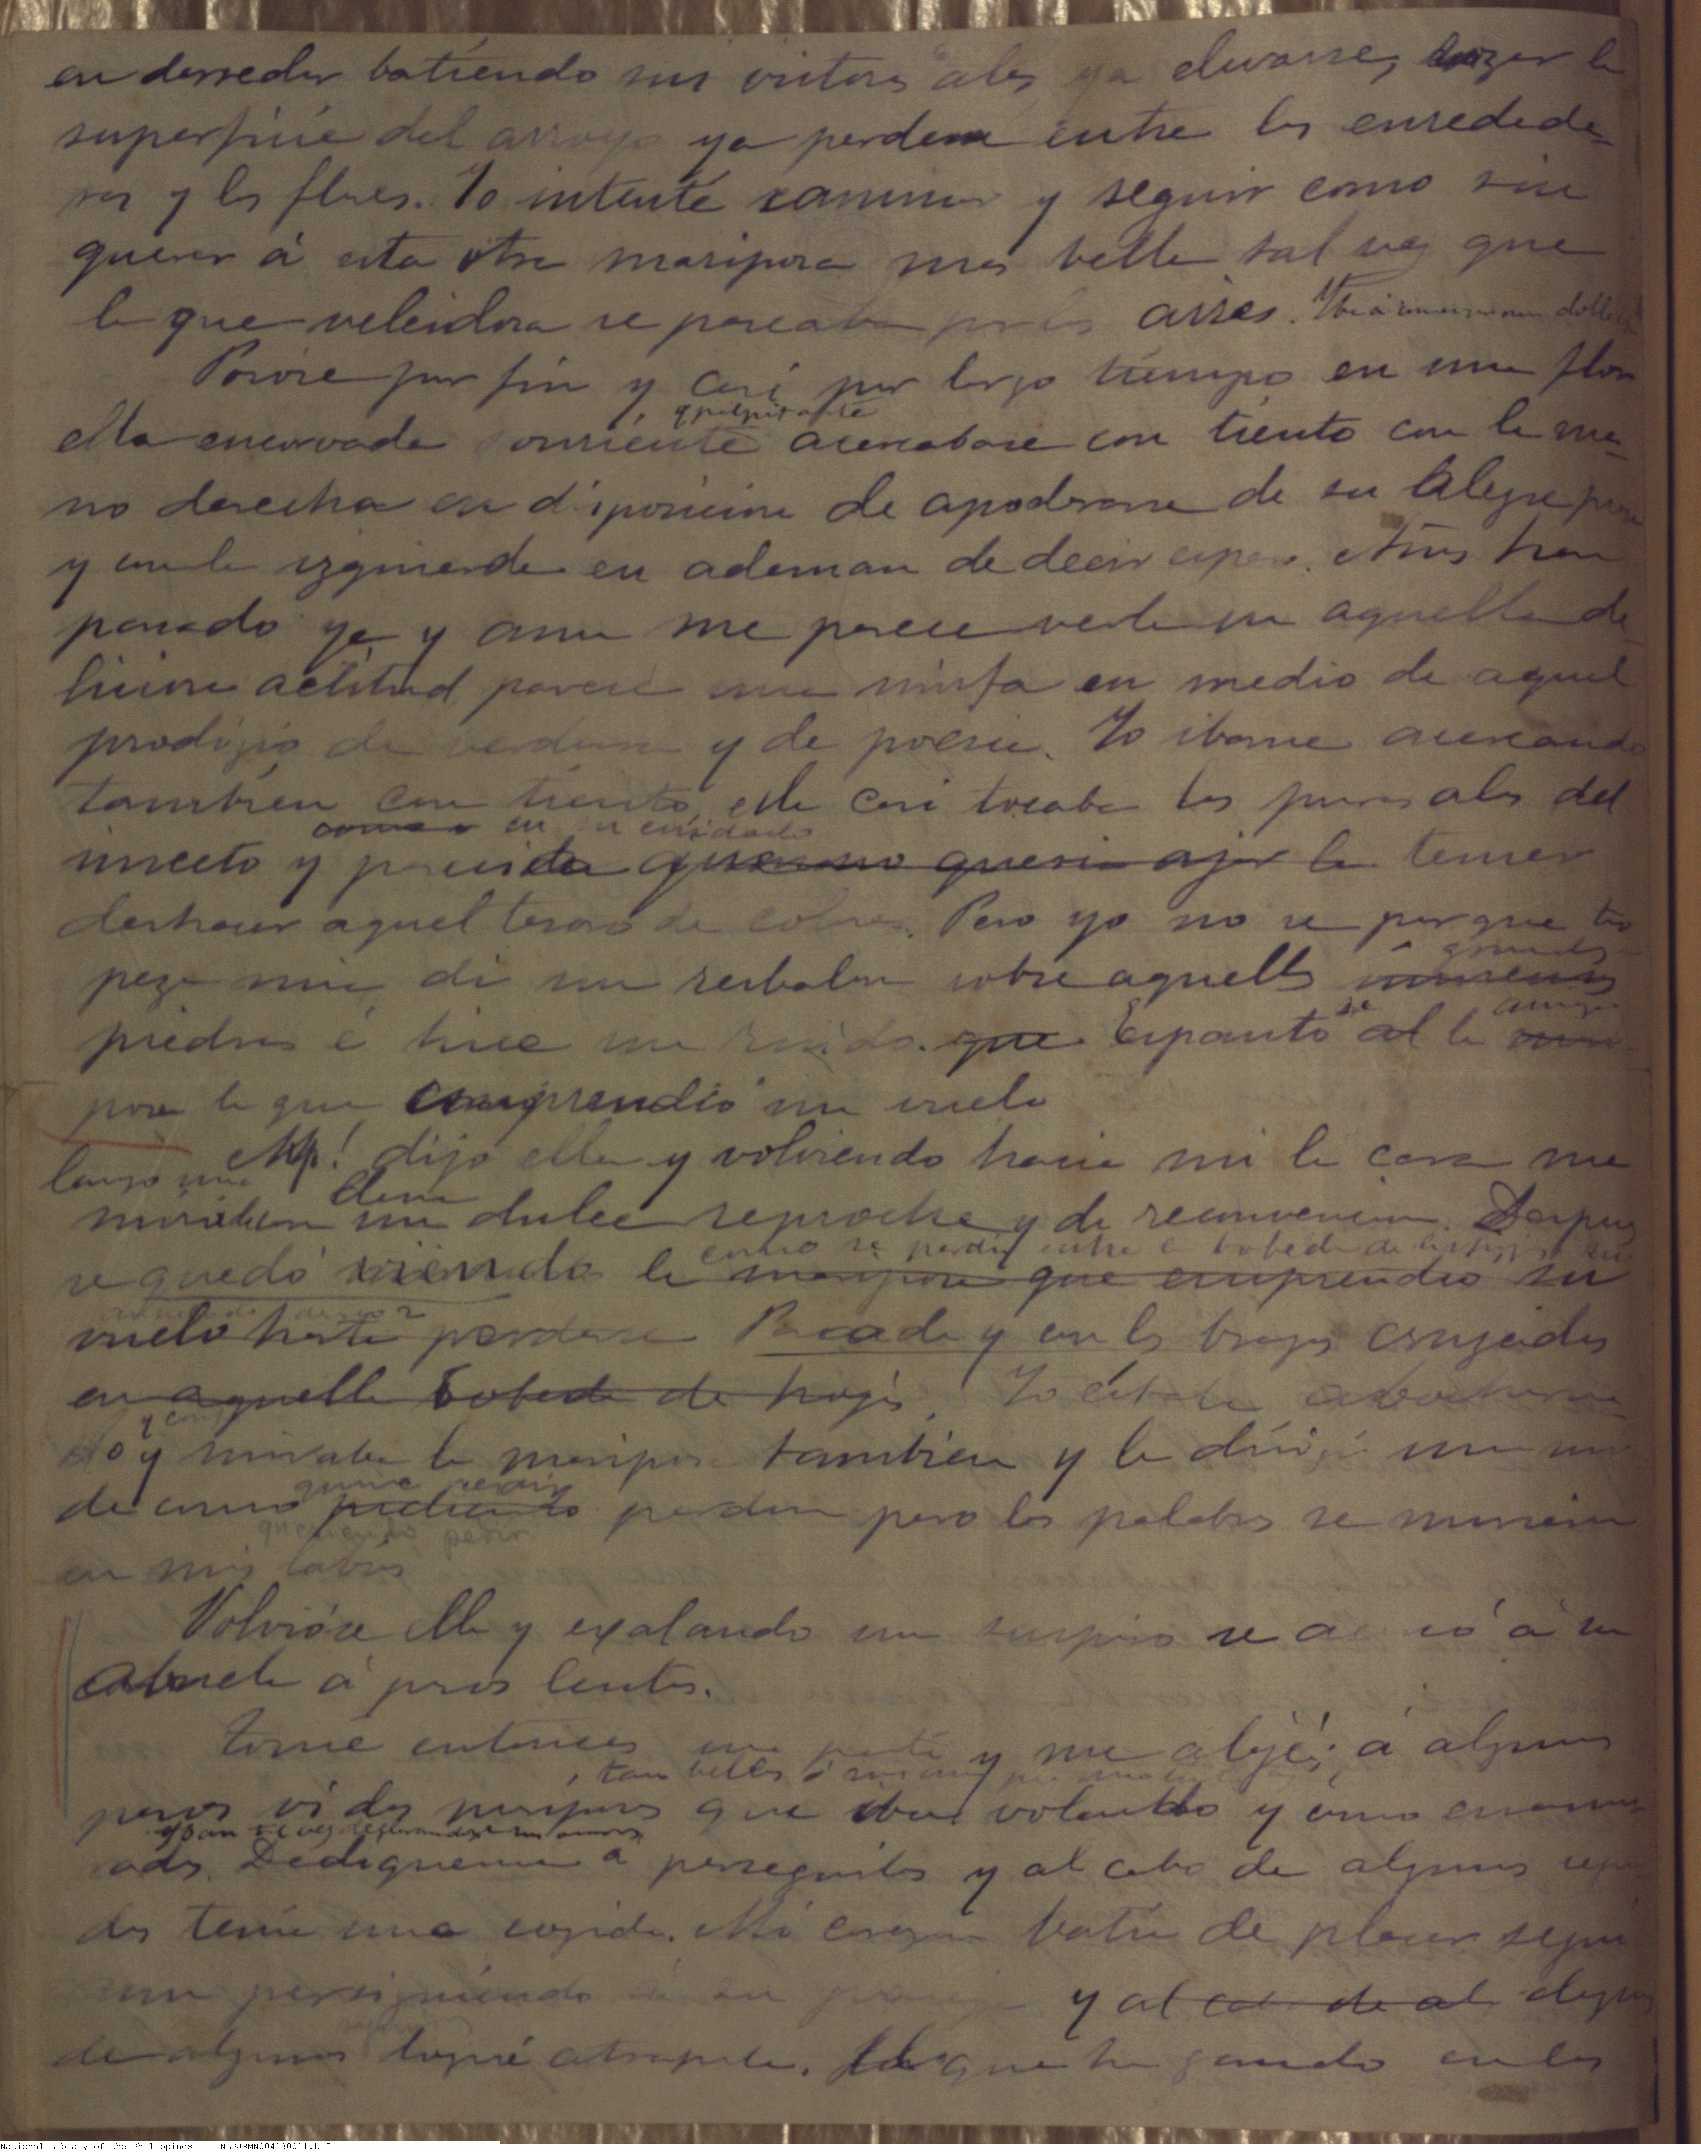 en derredor batiendo sus vistosas alas ya elevarse, rozar la
superficie del arroyo ya perderse entre las enredade-
ras y las flores. Yo intenté caminar y seguir como sin
querer á esta otra mariposa mas bella tal vez que
la que veleidosa se paseaba por los aires.
Posóse por fin y casi por largo tiempo en una flor
y palpitante
ella encorvada sonriente acercabase con tiento con la ma-
no derecha en disposicion de apoderarse de su alegre presa
y con la izquierda en ademan de decir espera. Años han
pasado ya y aun me parece verla en aquella de-
liciosa actitud parecia una ninfa en medio de aquel
prodigio de verdura y de poesia. Yo ibame acercando
tambien con tiento, ella casi tocaba las puras alas del
como en su cuidado
insecto y parecida que no queria ajarla temer
deshacer aquel tesoro de colores. Pero yo no se porque tro
grandes
peze mie di un resbalon sobre aquellas inmensas
se
piedras é hice un ruido. que Espantó al la
posa la que emprendió un vuelo
Ay! dijo ella y volviendo hacia mi la cara me
lanzo una
llena
mirada un dulce reproche y de reconvencion. Despues
como se perdia entre la bobeda de
se quedó viendo la mariposa que emprendio su
vuelo hasta perderse Parada y con los brazos cruzados
en aquella bobeda de hojas. Yo estaba abochorna-
do y miraba la mariposa tambien y la dirigí una mi
quien pedia
da como pidiendo perdon pero las palabras se murieron
queriendo pedir
en mis labios
Volvióse ella y exalando un suspiro se acercó á su
abuela á pasos lentos.
Tomé entonces una y me alejé; á algunos
tan bellas
pasos vi dos mariposas que iban volando y como enamor
adas. Dediqueme á perseguirlas y al cabo de algunos segun
dos tenia una cogida. Mi corazon batia de placer segui
aun persiguiendo á su pareja y al cabo de al despues
de algunos logré atraparla. que ha gozado en los